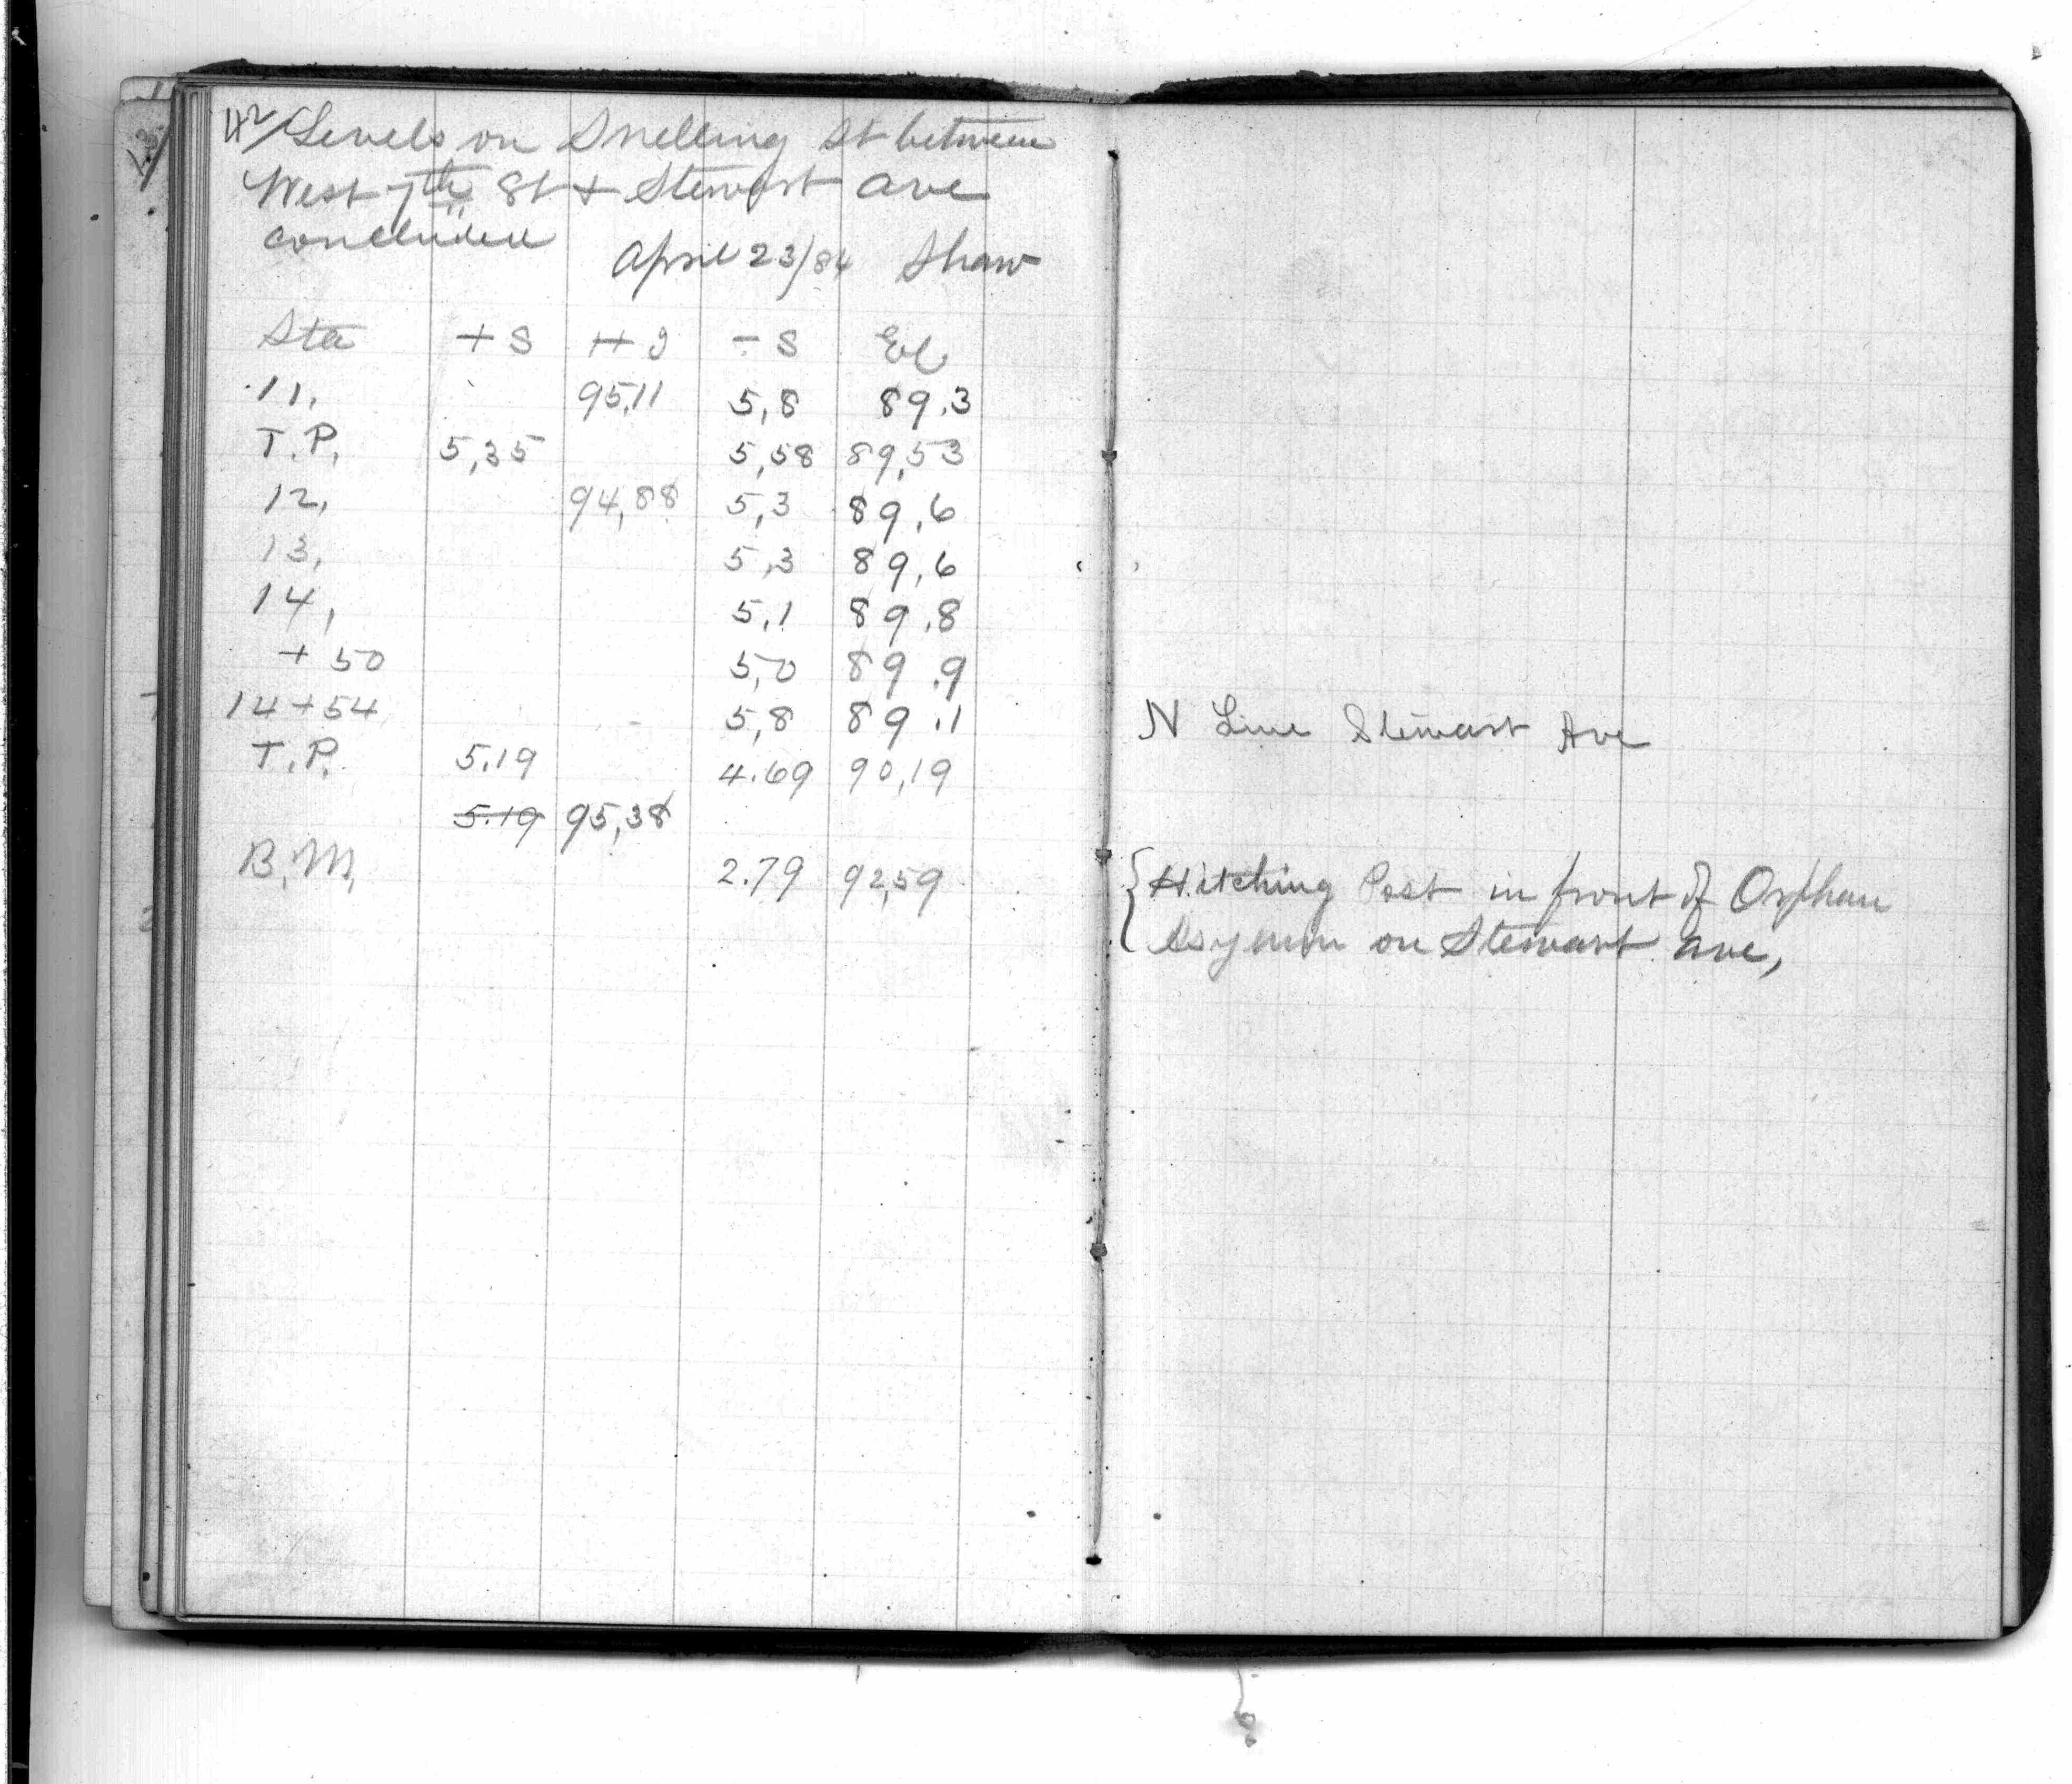 42/ Levels on Snelling St between
West 7th St + Stewart ave
concluded
April 23/84 Shaw
Sta + S H I - S El
11, 95,11 5,8 89.3
T.P. 5,35 5,58 89,53
12, 94,88 5,3 89,6
13, 5,3 89,6
14, 5,1 89,8
+ 50 5,0 89.9
14+54 5,8 89.1 N Line Stewart Ave
T.P. 5.19 4.69 90,19
5.19 95,38
B,M, 2.79 92,59 Hitching Post in front of Orphan
Asylum on Stewart ave,